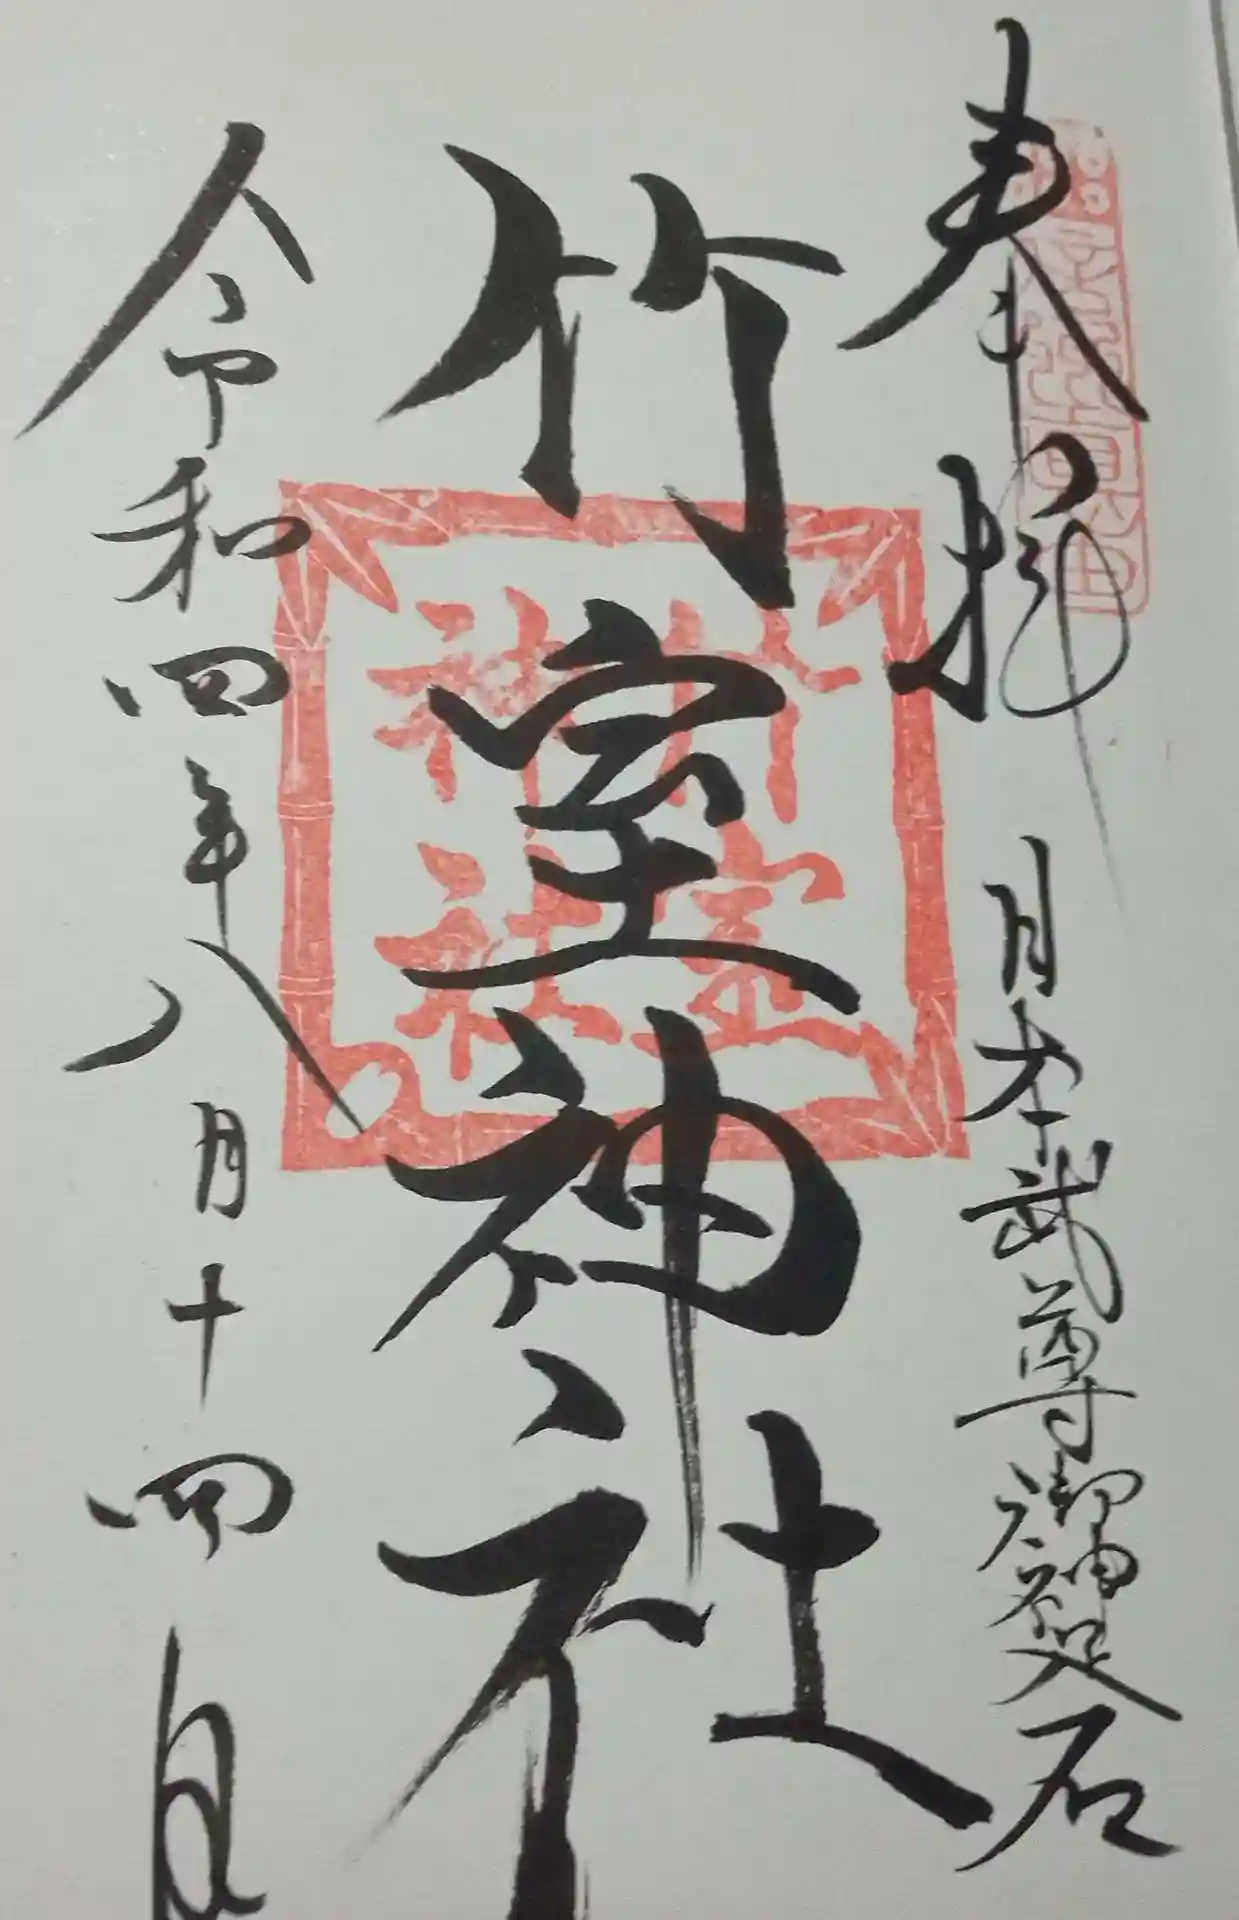 奉拝 日本武尊御神石
竹室神社
竹室
神社
令和四年八月十四日